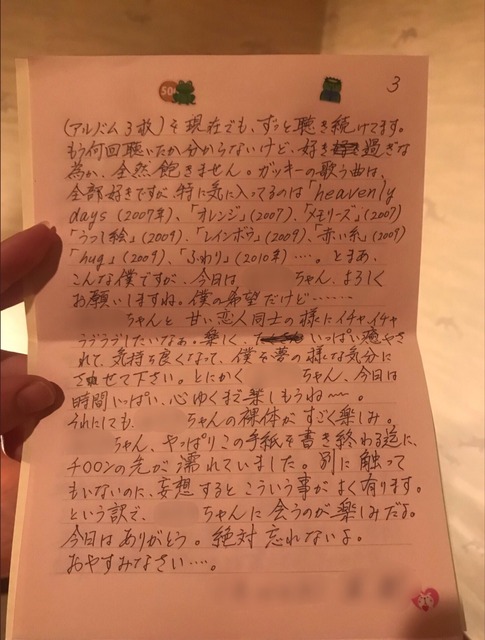 50
3
(アルバム3枚)を現在でも、ずっと聴き続けてます。
もう何回聴いたか分からないけど、好き過ぎな
為か、全然飽きません。ガッキーの歌う曲は、
全部好きですが、特に気に入ってるのは「heavenly
days(2007年)、「オレンジ」(2007)、「メモリーズ」(2007)
「うつし絵」(2009)、「レインボウ」(2009)、「赤い糸」(2009)
「hug」(2009)、「ふわり」(2010年)…。とまあ、
こんな僕ですが、今日は ちゃん、よろしく
お願いしますね。僕の希望だけど……
ちゃんと甘い恋人同士の様にイチャ、イチャ
ラブラブしたいなぁ。楽しく、いっぱい癒やさ
れて、気持ち良くなって、僕を夢の様な気分に
させて下さい。とにかく ちゃん、今日は
時間いっぱい、心ゆくまで楽しもうね〜。
それにしても、 ちゃんの裸体がすごく楽しみ。
ちゃん、やっぱりこの手紙を書き終わる迄に、
チ〇〇ンの先が濡れていました。別に触って
もいないのに、妄想するとこういう事がよく有ります。
という訳で、 ちゃんに会うのが楽しみだよ。
今日はありがとう。絶対忘れないよ。
おやすみなさい…。